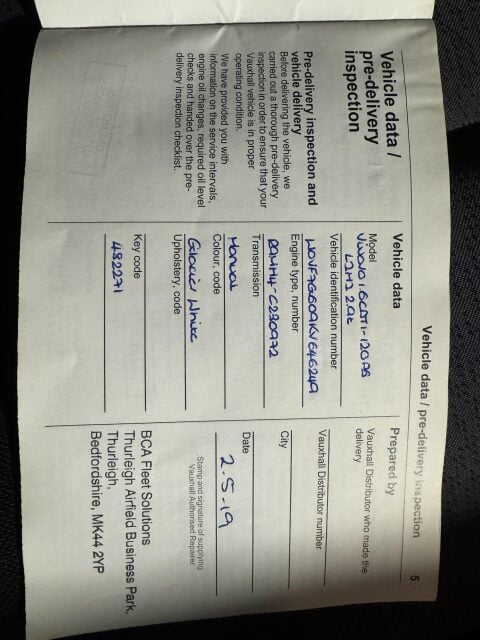 Vehicle data / pre-delivery inspection 5
Vehicle data /
pre-delivery
inspection
Pre-delivery inspection and
vehicle delivery
Before delivering the vehicle, we
carried out a thorough pre-delivery
inspection in order to ensure that your
Vauxhall vehicle is in proper
operating condition.
We have provided you with
information on the service intervals,
engine oil changes, required oil level
checks and handed over the pre-
delivery inspection checklist.
Vehicle data
Model
Vivaro 1.6CDTI-120PS
L2H1 2.9t
Vehicle identification number
W0VF7G609KV646249
Engine type, number
R9MM4-C230972
Transmission
Manual
Colour, code
Glacier White
Upholstery, code
Key code
482271
Prepared by
Vauxhall Distributor who made the
delivery
Vauxhall Distributor number
City
Date
2.5.19
Stamp and signature of supplying
Vauxhall Authorised Repairer
BCA Fleet Solutions
Thurleigh Airfield Business Park,
Thurleigh,
Bedfordshire, MK44 2YP